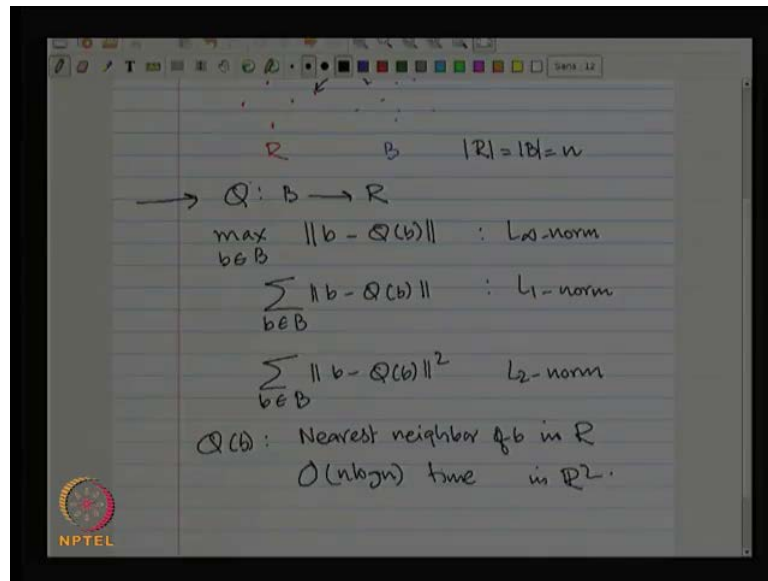 T
Sans 12
R B |R| = |B| = n
→ Q : B → R
max ‖b - Q(b)‖ : L∞-norm
b∈B
∑ ‖b - Q(b)‖ : L1-norm
b∈B
∑ ‖b - Q(b)‖² L2-norm
b∈B
Q(b) : Nearest neighbor of b in R
O(nlogn) time in ℝ².
NPTEL